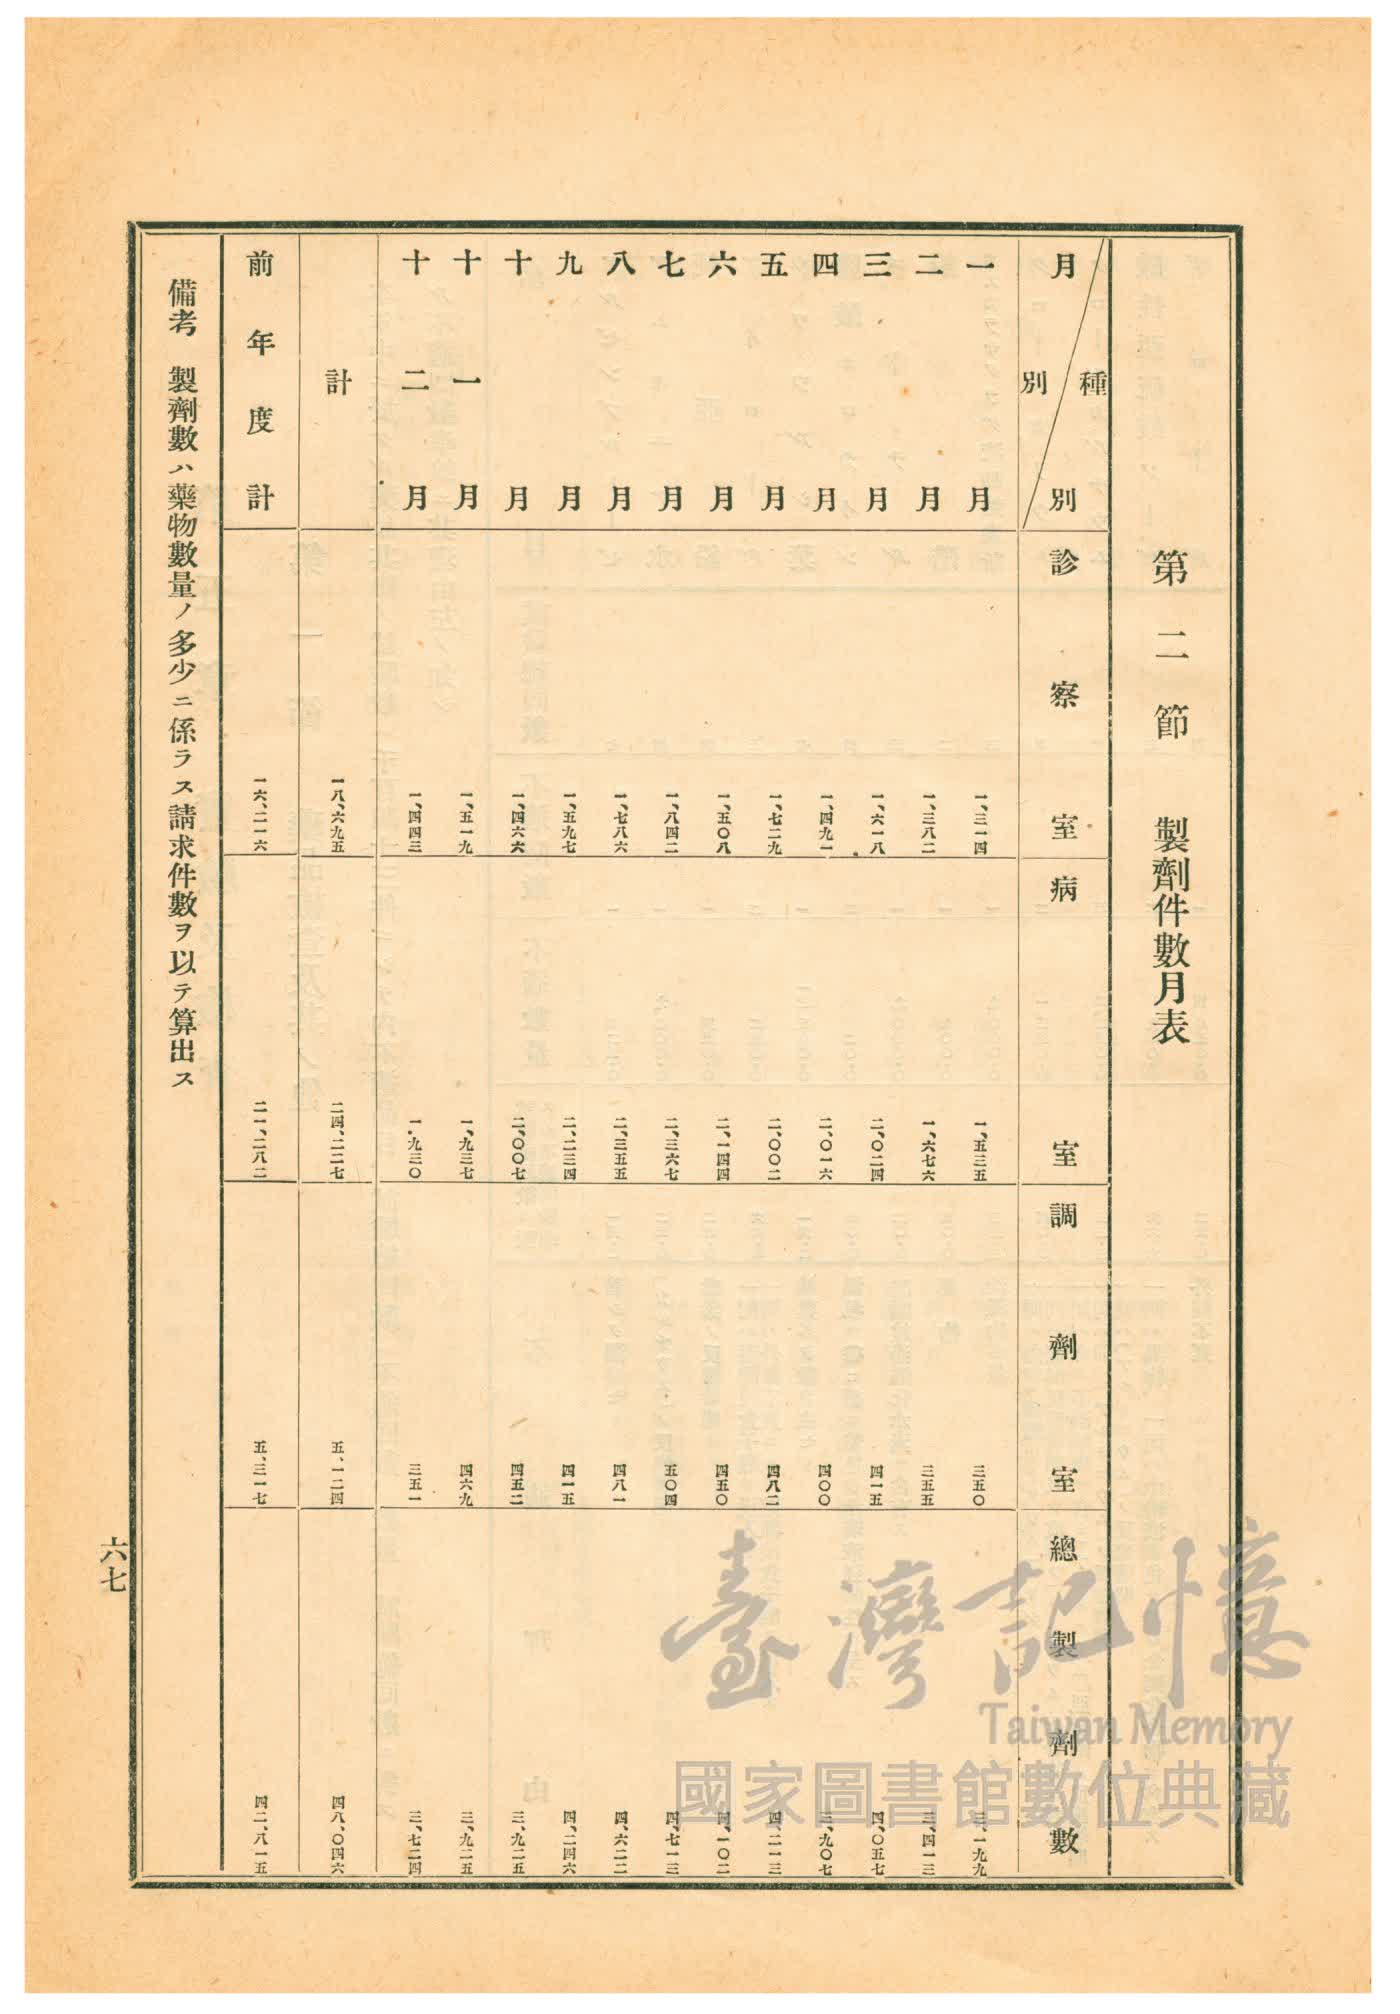 第二節 製劑件數月表
月別 種別 診察室 病室 調劑室 總製劑數
一月 一、三一四 一、五三五 三五〇 三、一九九
二月 一、三八二 一、六七六 三五五 三、四一三
三月 一、六一八 二、〇二四 四一五 四、〇五七
四月 一、四九一 二、〇一六 四〇〇 三、九〇七
五月 一、七二九 二、〇〇二 四八二 四、二一三
六月 一、五〇八 二、一四四 四五〇 四、一〇二
七月 一、八四二 二、三六七 五〇四 四、七一三
八月 一、七八六 二、三五五 四八一 四、六二二
九月 一、五九七 二、二三四 四一五 四、二四六
十月 一、四六六 二、〇〇七 四五二 三、九二五
十一月 一、五一九 一、九三七 四六九 三、九二五
十二月 一、四四三 一、九三〇 三五一 三、七二四
計 一八、六九五 二四、二二七 五、一二四 四八、〇四六
前年度計 一六、二一六 二一、二八二 五、三一七 四二、八一五
備考 製劑數ハ藥物數量ノ多少ニ係ラス請求件數ヲ以テ算出ス
六七
臺灣記憶
Taiwan Memory
國家圖書館數位典藏